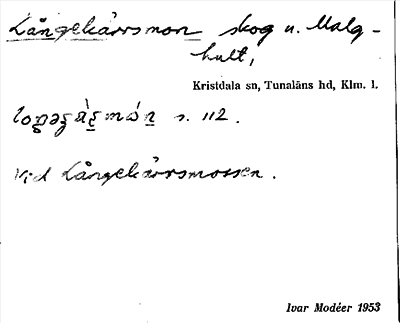 Långekärrsmon skog u. Malg-
hult,
Kristdala sn, Tunaläns hd, Klm. l.
s. 112.
vid Långekärrsmossen.
Ivar Modéer 1953